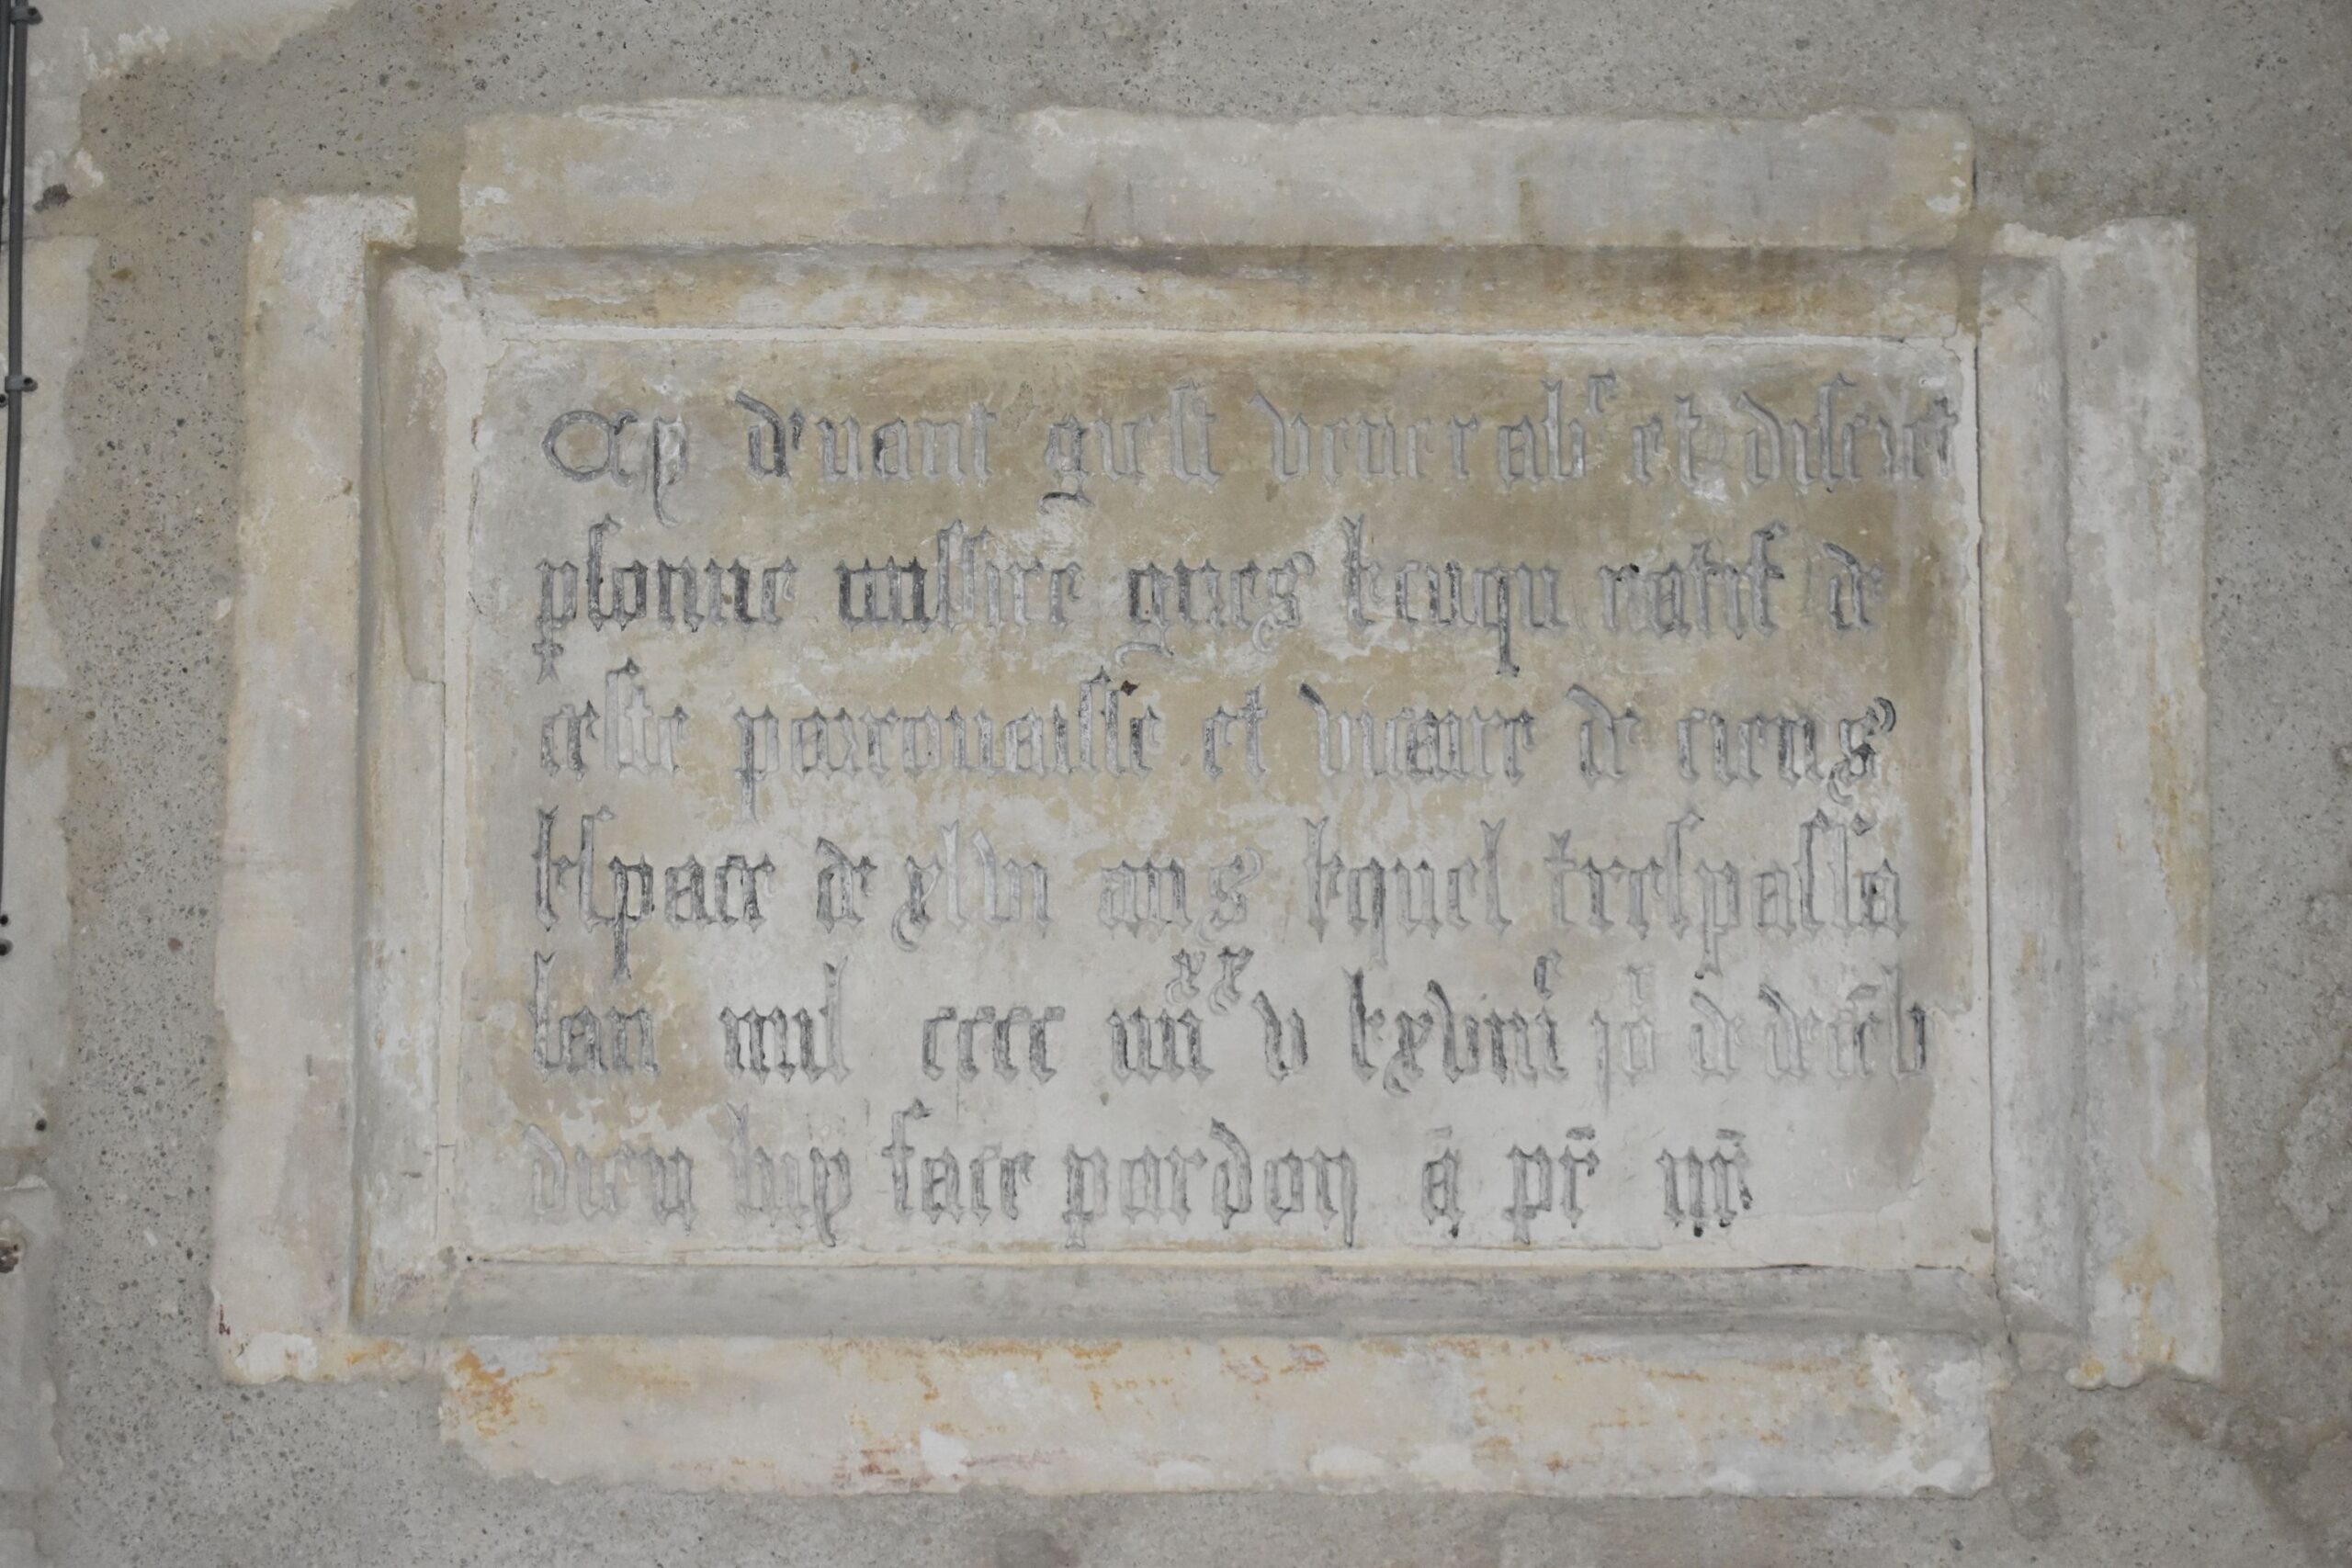 Cy d'vant gist venerab' et discret
psonne missire gues lecuqu natif de
ceste parrouaisse et vicaire de ciens
lespace de xlvi ans lequel trespassa
lan mil cccc iiii xx v le xviii e jo de decēb
dieu luy face pardon ā pr̄ nr̄